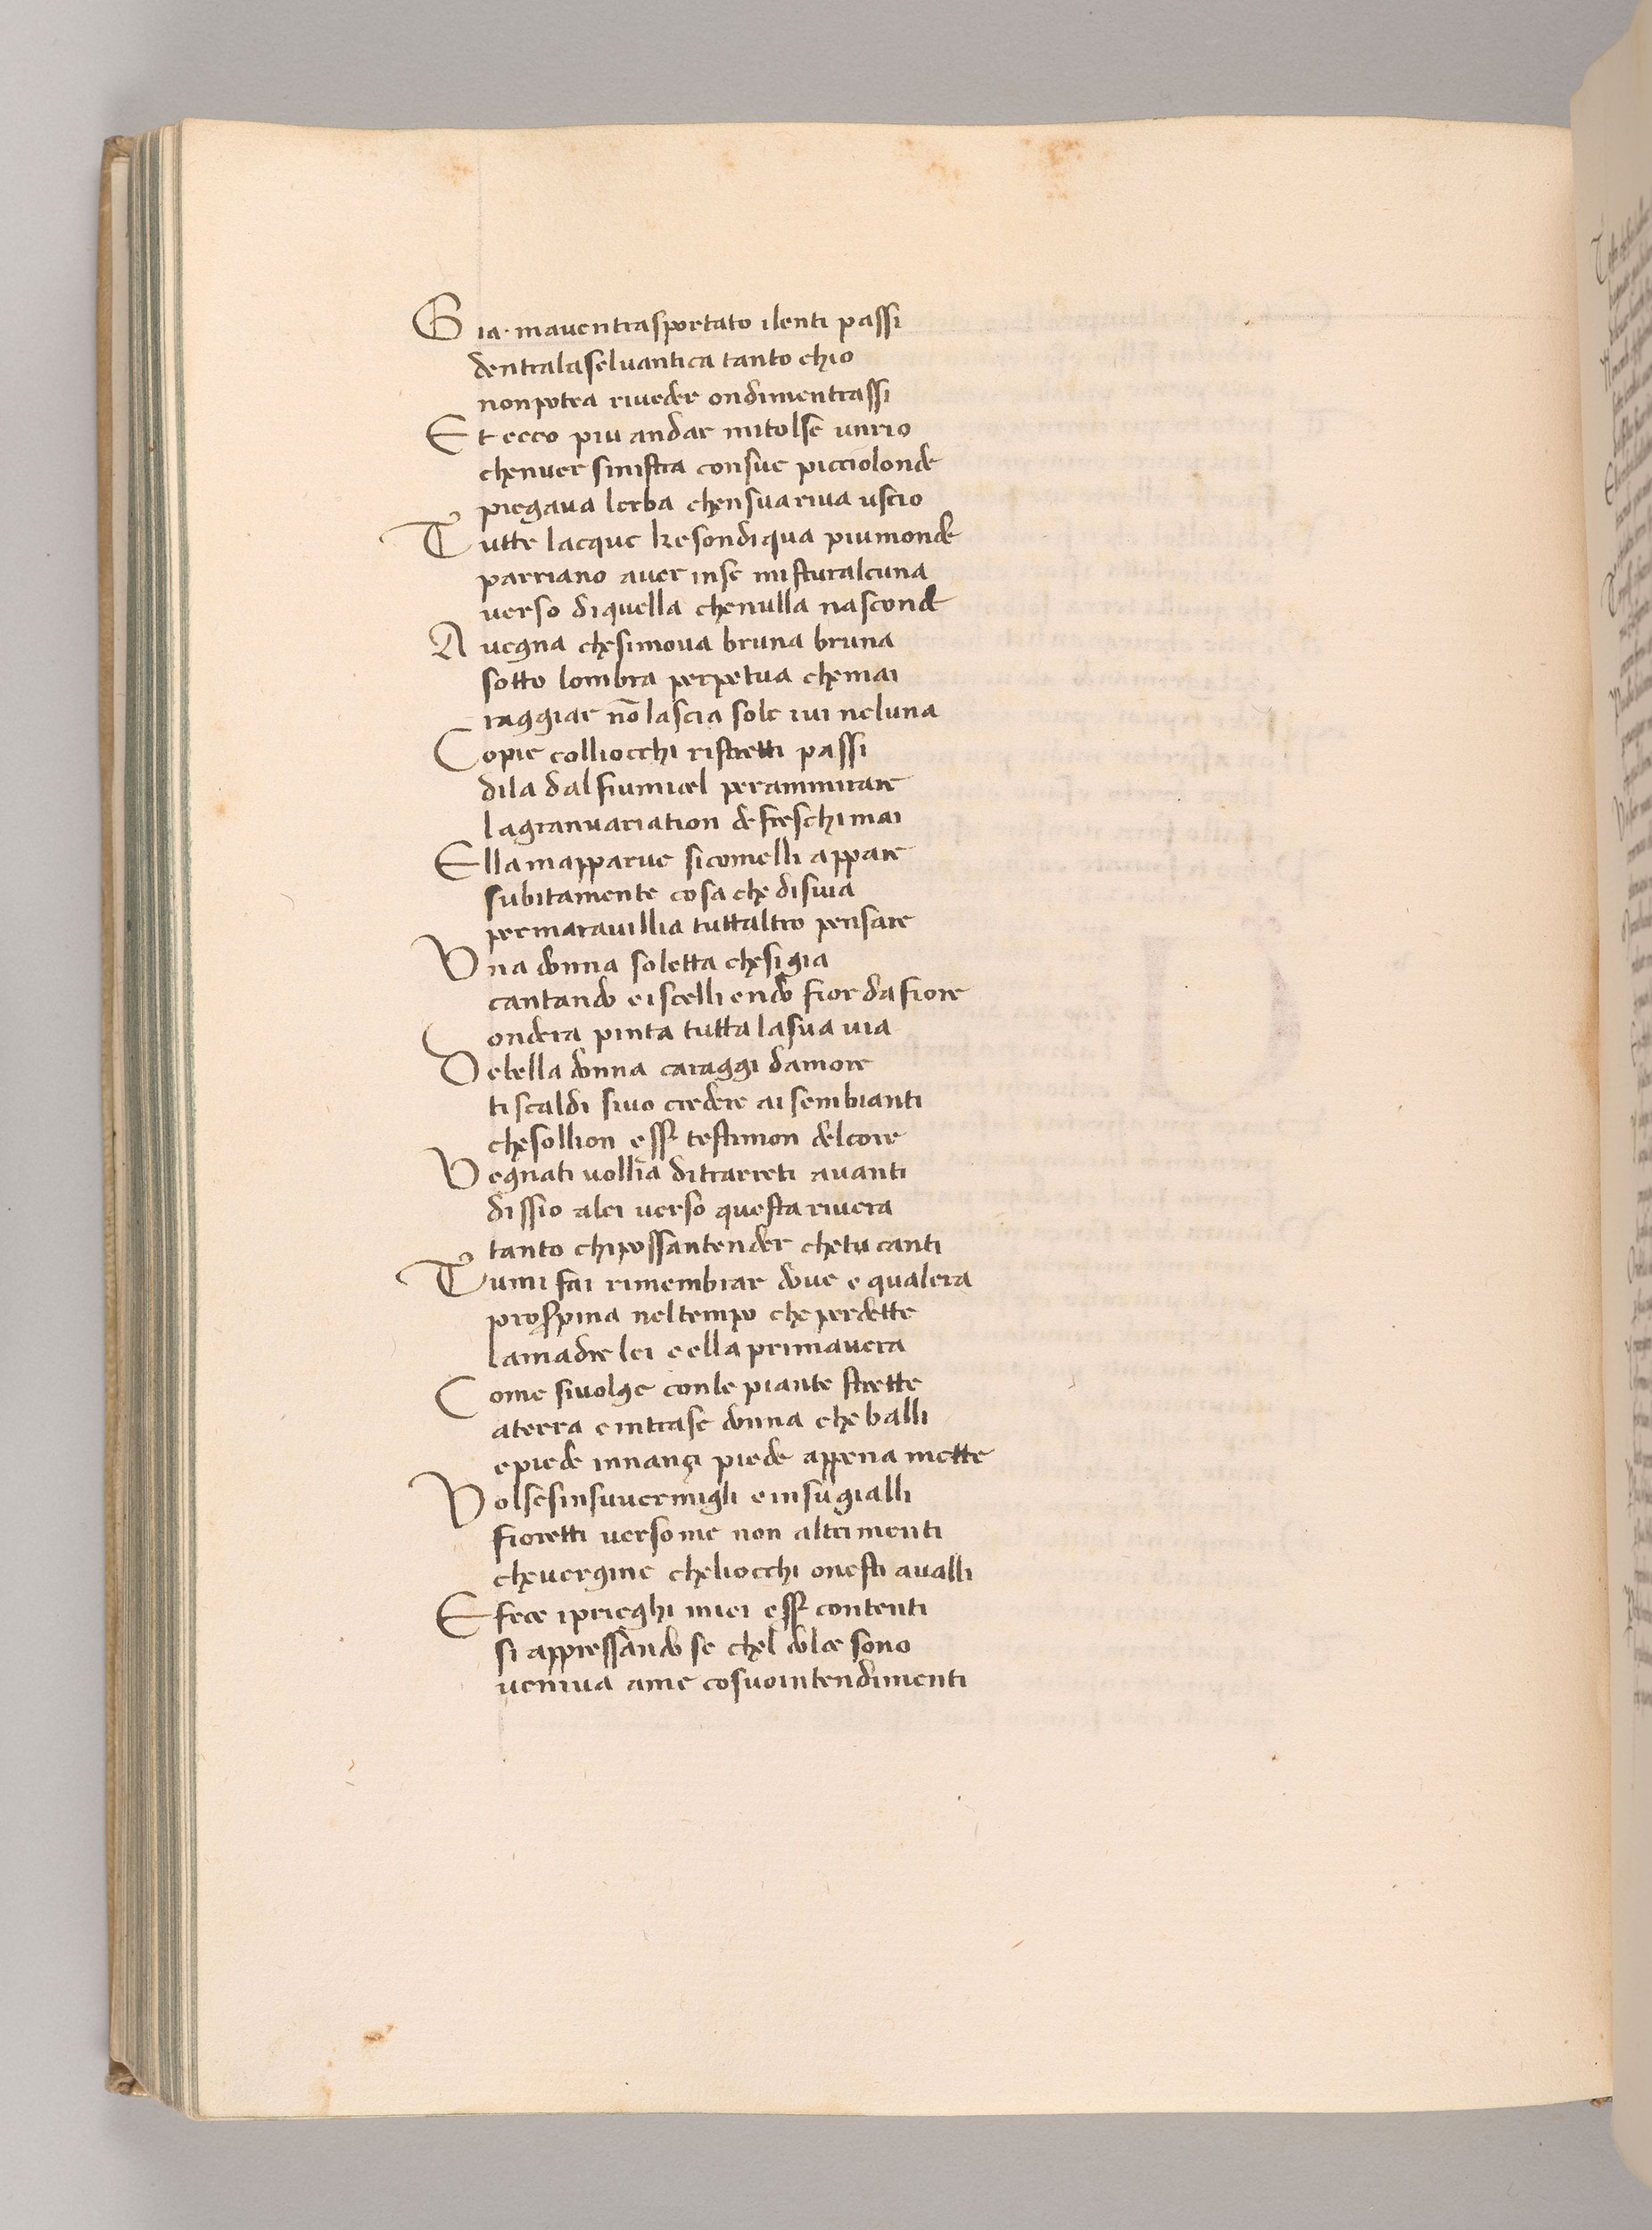 Gia · maventrasportato ilenti passi
dentralaselvantica tanto chio
nonpotea riveder ondimentrassi
Et ecco piu andar mitolse unrio
chenver sinistra consue picciolonde
piegava lerba chensuariva uscio
Tutte lacque kesondiqua piumonde
parriano aver inse misturalcuna
verso diquella chenulla nasconde
Avegna chesimova bruna bruna
sotto lombra perpetua chemai
raggiar nō lascia sole ivi neluna
Copie colliocchi ristretti passi
dila dal fiumicel perammirare
lagranvariation defreschi mai
Ella mapparve sicomelli appare
subitamente cosa che disvia
permaravillia tuttaltro pensare
Una donna soletta chesigia
cantando eiscelliendo fior dafiore
ondera pinta tutta lasua via
Debella donna caraggi damore
tiscaldi sivo credere aisembianti
chesollion esser testimon delcore
Vegnati vollia ditrarreti avanti
dissio alei verso questa rivera
tanto chipossantender chetu canti
Tumi fai rimembrar dove e qualera
proserpina neltempo che perdette
lamadre lei eella primavera
Come sivolge conle piante strette
aterra eintrase donna che balli
epiede innançi piede appena mette
Volsesinsuvermigli einsugialli
fioretti versome non altrimenti
chevergine cheliocchi onesti avalli
Efece iprieghi miei esser contenti
si appressando se chel dolce sono
veniva ame cosuointendimenti